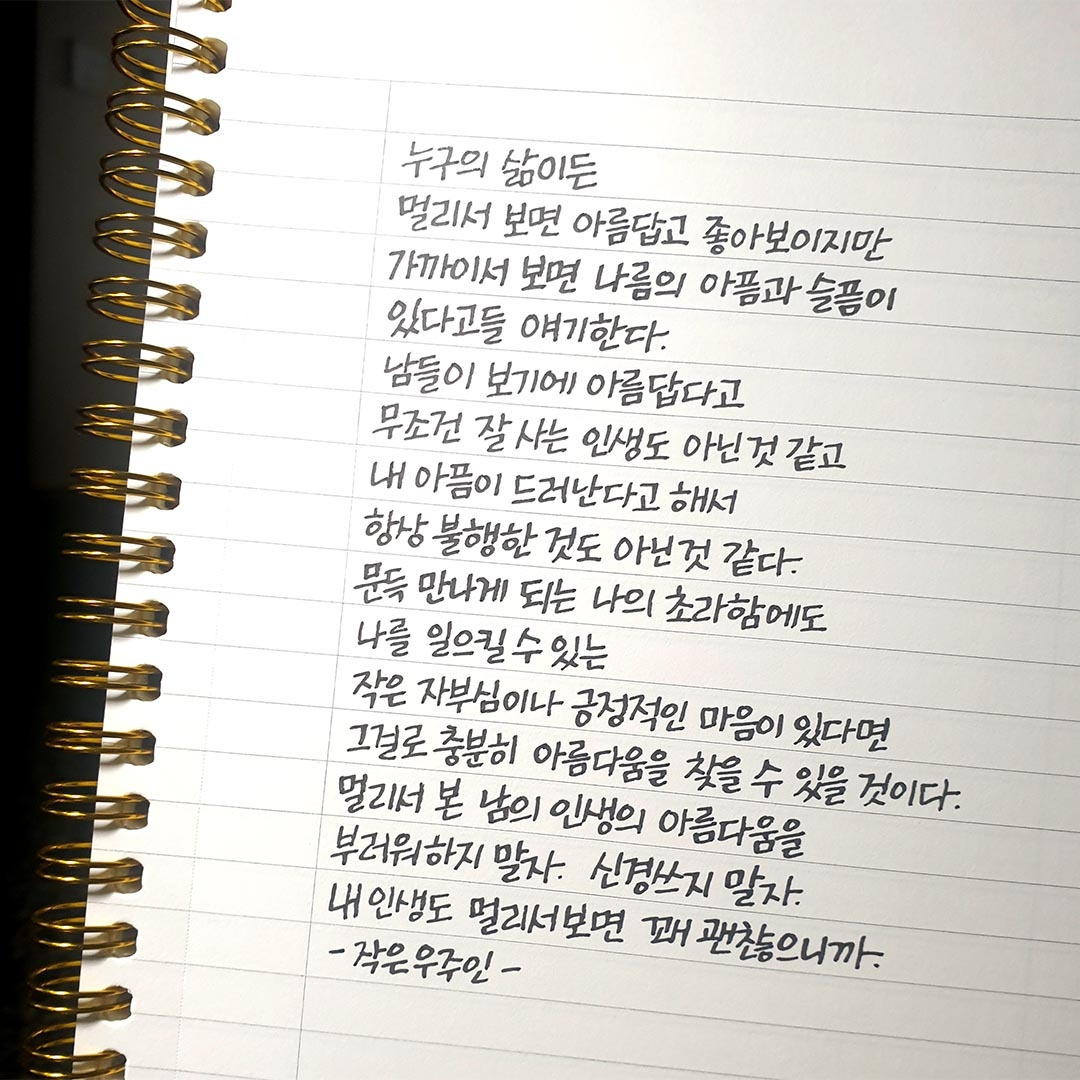 누구의 삶이든
멀리서 보면 아름답고 좋아보이지만
가까이서 보면 나름의 아픔과 슬픔이
있다고들 얘기한다.
남들이 보기에 아름답다고
무조건 잘 사는 인생도 아닌것 같고
내 아픔이 드러난다고 해서
항상 불행한 것도 아닌것 같다.
문득 만나게 되는 나의 초라함에도
나를 일으킬 수 있는
작은 자부심이나 긍정적인 마음이 있다면
그걸로 충분히 아름다움을 찾을 수 있을 것이다.
멀리서 본 남의 인생의 아름다움을
부러워하지 말자. 신경쓰지 말자.
내 인생도 멀리서보면 꽤 괜찮으니까.
- 작은우주인 -